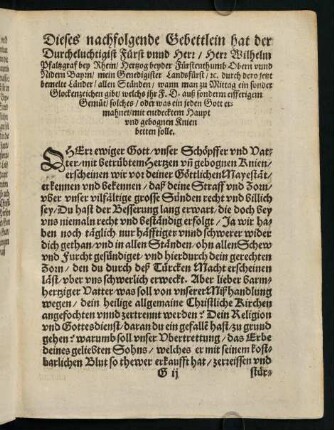 Dieses nachfolgende Gebettlein hat der
Durchleuchtigist Fürst vnnd Herr / Herr Wilhelm
Pfaltzgraf bey Rhein / Hertzog beyder Fürstenthumb Obern vnnd
Nidern Bayrn / mein Genedigister Landsfürst / ꝛc. durch dero jetzt
bemelte Länder / allen Ständen / wann man zu Mittag ein sonder
Glockenzeichen gibt / welchs jhr F. D. auß sonderm eifferigem
Gemüt / solches / oder was ein jeden Gott er-
mahnet / mit entdecktem Haupt
vnd gebognen Knien
betten solle.
O HErr ewiger Gott / vnser Schöpffer vnd Vat-
ter / mit betrübtem Hertzen vñ gebognen Knien /
erscheinen wir vor deiner Göttlichen Mayestät /
erkennen vnd bekennen / daß deine Straff vnd Zorn /
vber vnser vilfältige grosse Sünden recht vnd billich
sey / Du hast der Besserung lang erwart / die doch bey
vns niemaln recht vnd beständig erfolgt / Ja wir ha-
ben noch täglich nur häfftiger vnnd schwerer wider
dich gethan / vnd in allen Ständen / ohn allen Schew
vnd Furcht gesündiget / vnd hierdurch dein gerechten
Zorn / den du durch deß Türcken Macht erscheinen
läst / vber vns schwerlich erweckt. Aber lieber barm-
hertziger Vatter was soll von vnserer Mißhandlung
wegen / dein heilige allgemeine Christliche Kirchen
angefochten vnnd zertrennt werden? Dein Religion
vnd Gottesdienst / daran du ein gefallẽ hast / zu grund
gehen? warumb soll vnser Vbertrettung / das Erbe
deines geliebten Sohns / welches er mit seinem kost-
barlichen Blut so thewer erkaufft hat / zerreissen vnd
G ij
stür-